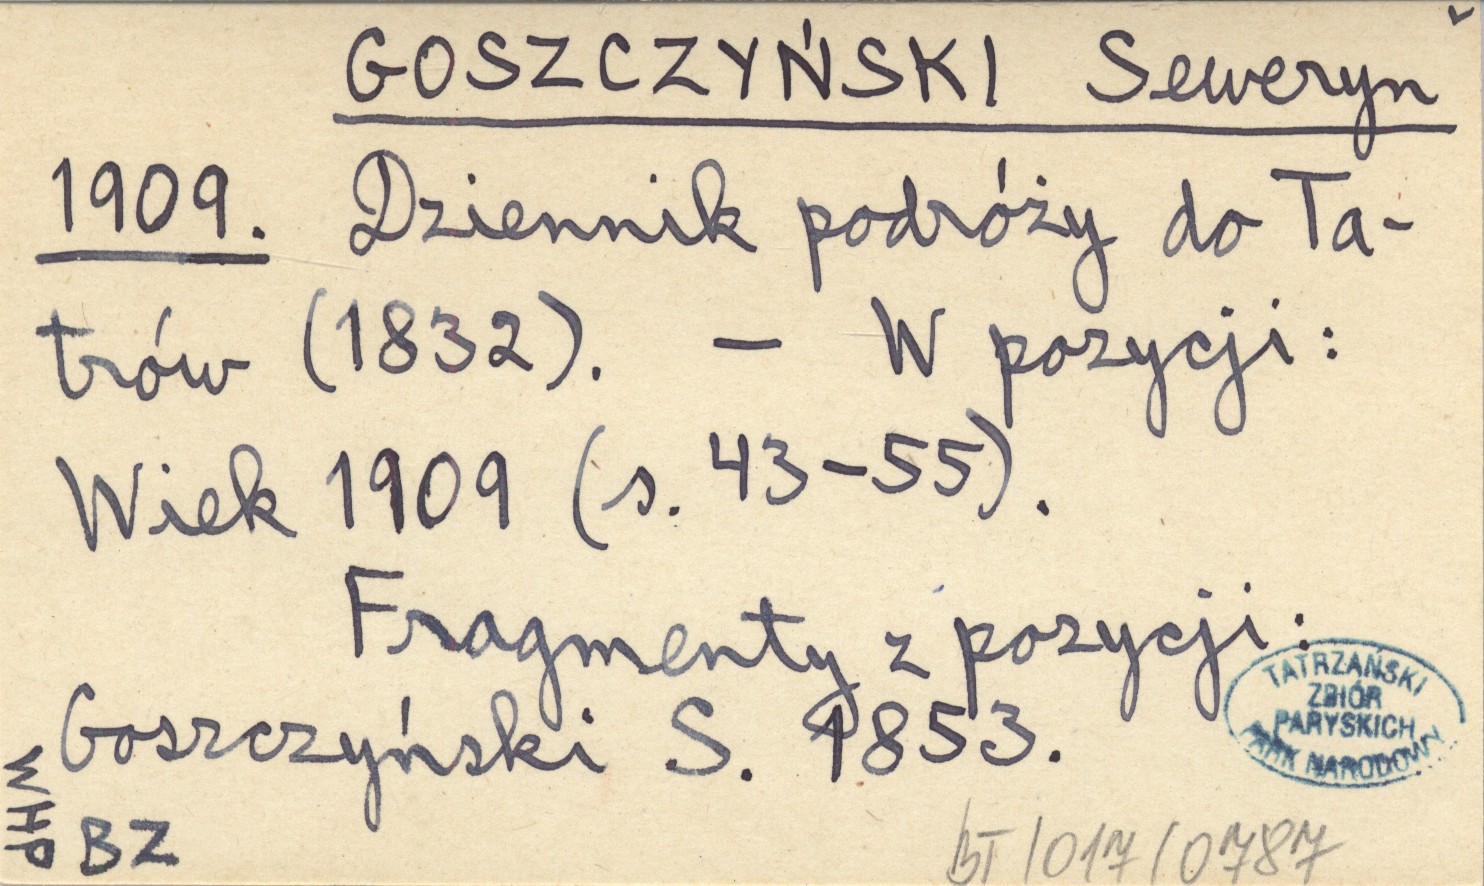 GOSZCZYŃSKI Seweryn
1909. Dziennik podróży do Ta-
trów (1832). – W pozycji:
Wiek 1909 (s. 43–55).
Fragmenty z pozycji:
Goszczyński S. 1853.
TATRZAŃSKI
ZBIÓR
PARYSKICH
PARK NARODOWY
WHP
BZ
BT/017/0787